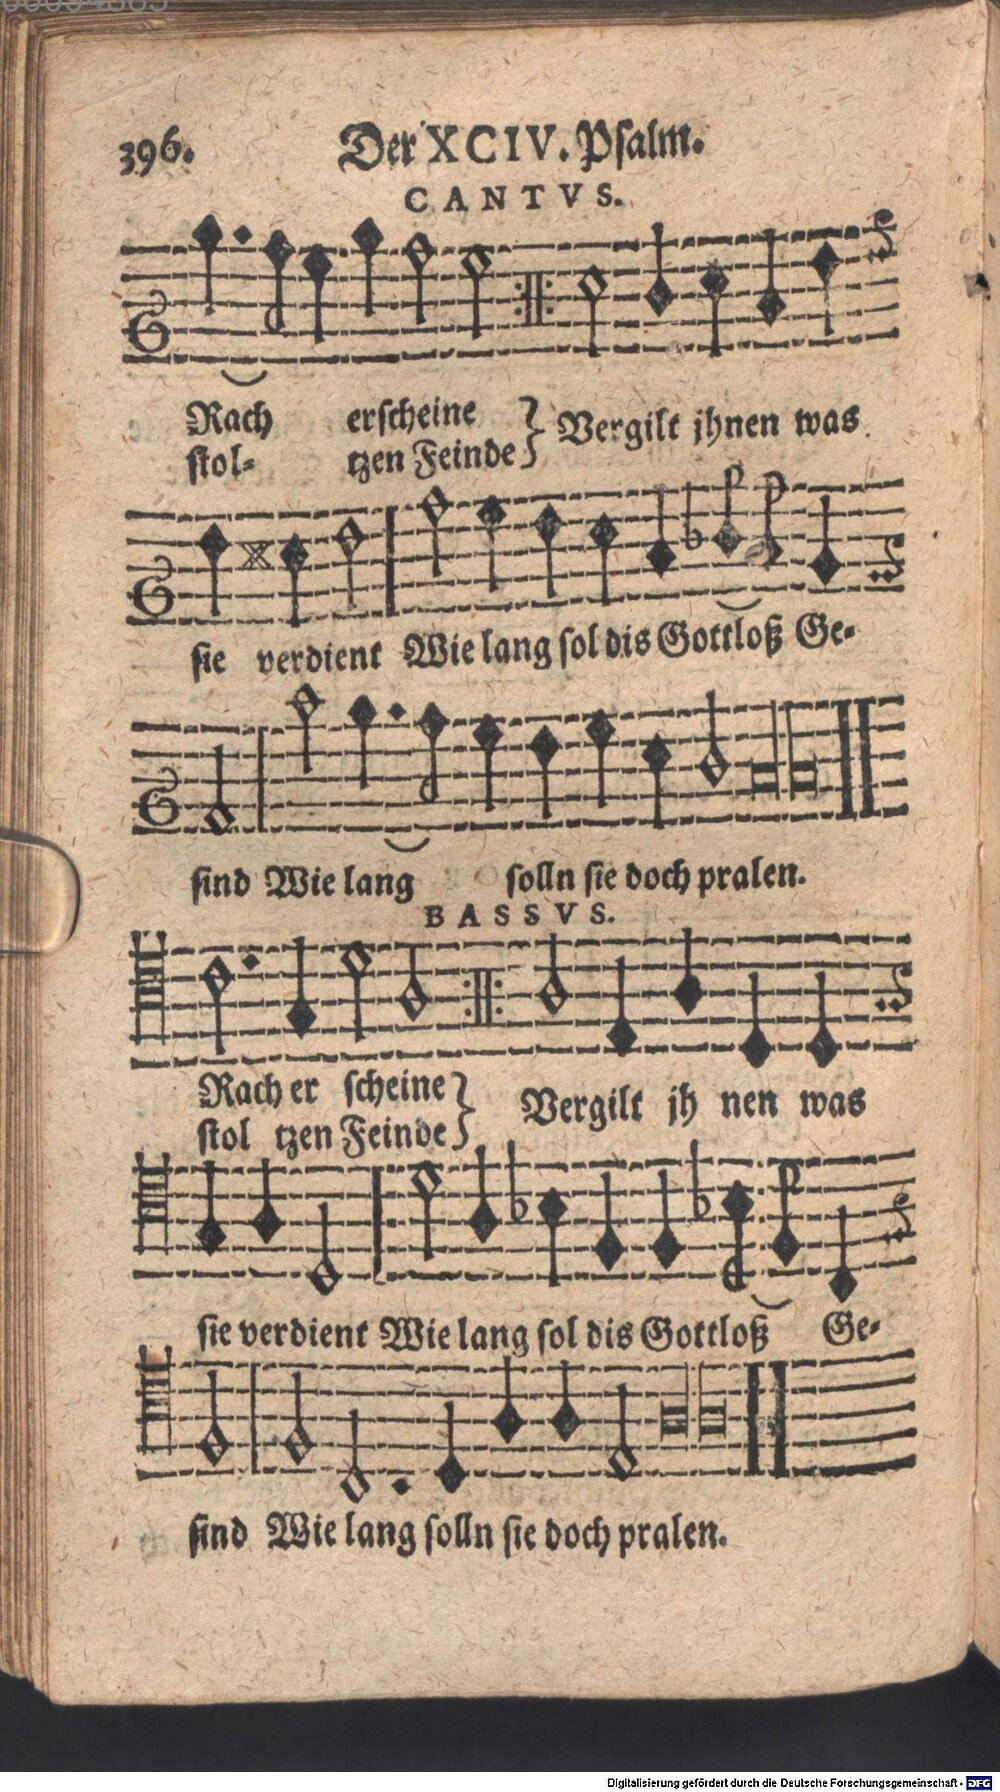 396.
Der XCIV. Psalm.
CANTVS.
Rach erscheine } Vergilt jhnen was
stol= tzen Feinde
sie verdient Wie lang sol dis Gottloß Ge=
sind Wie lang solln sie doch pralen.
BASSVS.
Rach er scheine } Vergilt jh nen was
stol tzen Feinde
sie verdient Wie lang sol dis Gottloß Ge=
sind Wie lang solln sie doch pralen.
Digitalisierung gefördert durch die Deutsche Forschungsgemeinschaft - DFG